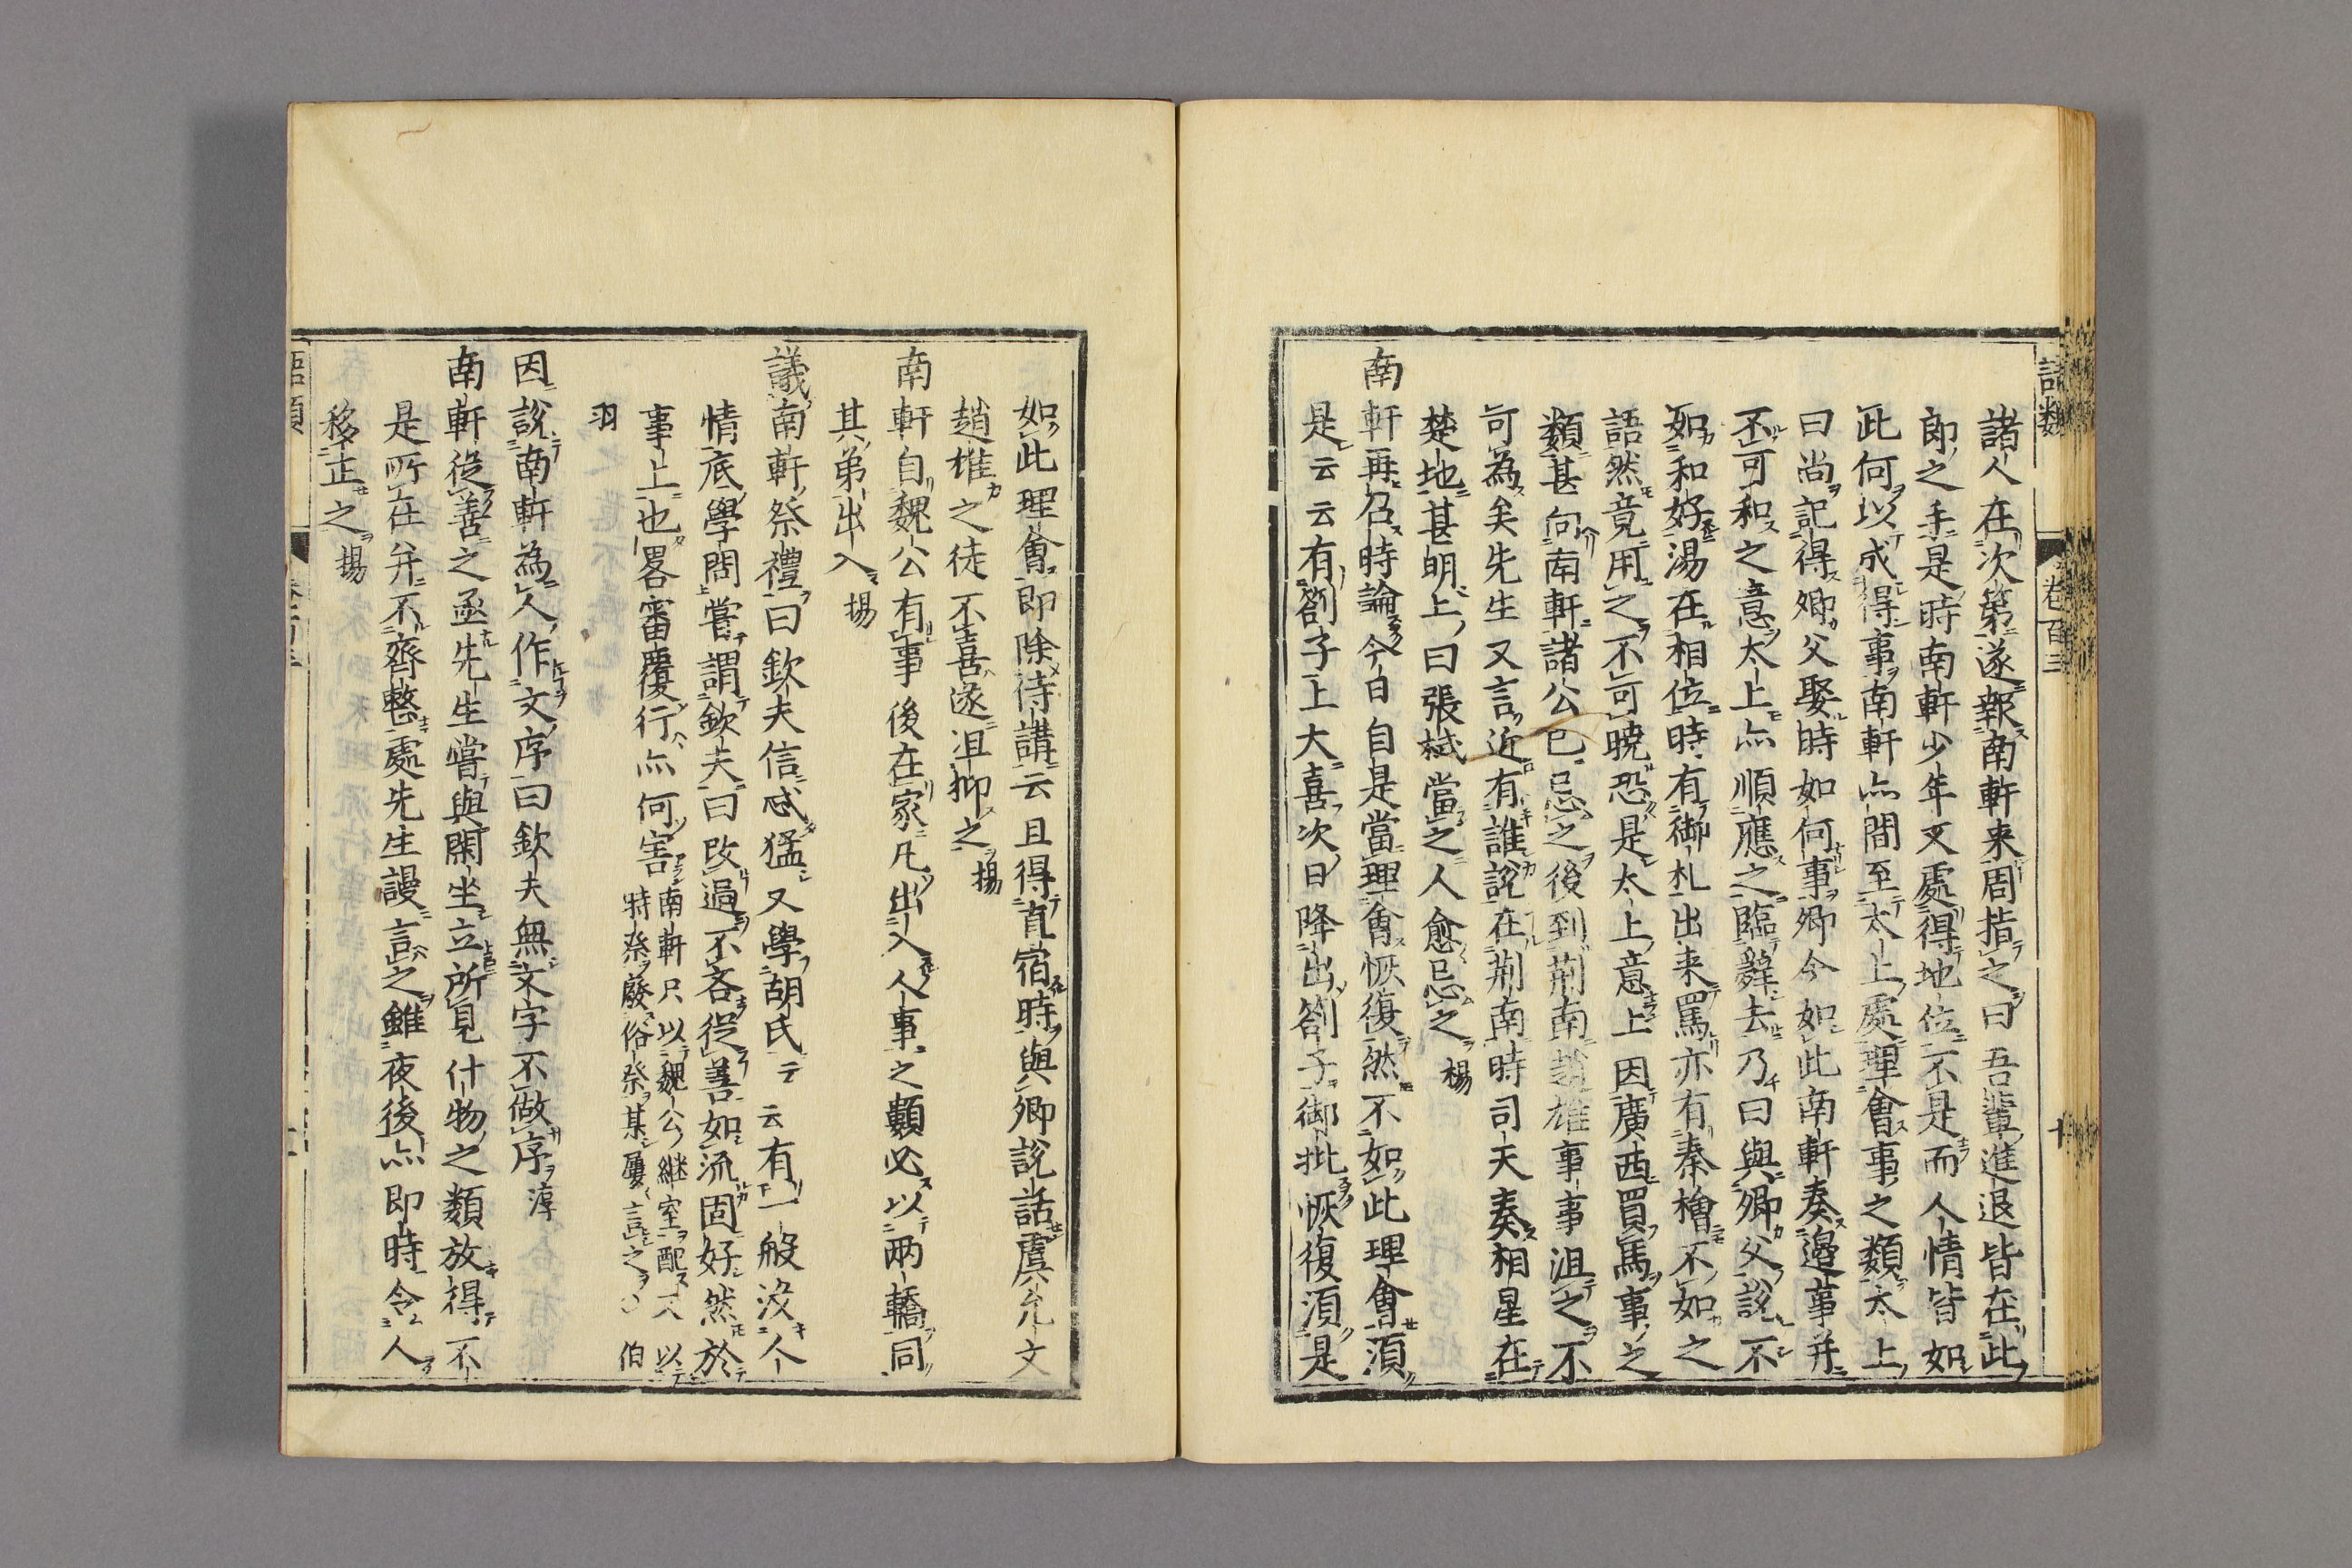 語類
卷百三
十
諸人在次第遂報南軒来周指之曰吾輩進退皆在此
郎之手是時南軒少年又處得地位不是而人情皆如
此何以成得事南軒亦間至太上處理會事之類太上
曰尚記得卿父娶時如何事卿今如此南軒奏邊事并
不可和之意太上亦順應之臨辭去乃曰與卿父說不
如和好湯在相位時有御札出来罵亦有秦檜不如之
語然竟用之不可曉恐是太上意上因廣西買馬事之
類甚向南軒諸公已忌之後到荊南趙雄事事沮之不
可為矣先生又言近有誰說在荊南時司天奏相星在
楚地甚明上曰張栻當之人愈忌之 楊
南軒再召時論今日自是當理會恢復然不如此理會須
是云云有劄子上大喜次日降出劄子御批恢復須是
如此理會即除侍講云且得直宿時與卿說話虞允文
趙雄之徒不喜遂沮抑之 揚
南軒自魏公有事後在家凡出入人事之類必以兩轎同
其弟出入 揚
議南軒祭禮曰欽夫信忒猛又學胡氏云云有一般沒人
情底學問嘗謂欽夫曰改過不吝從善如流固好然於
事上也畧審覆行亦何害 南軒只以魏公継室配又以
特祭廢俗祭某屢言之〇伯
羽
因說南軒為人作文序曰欽夫無文字不做序 淳
南軒從善之亟先生嘗與閑坐立所見什物之類放得不
是所在并不齊整處先生謾言之雖夜後亦即時令人
移正之 揚
語類